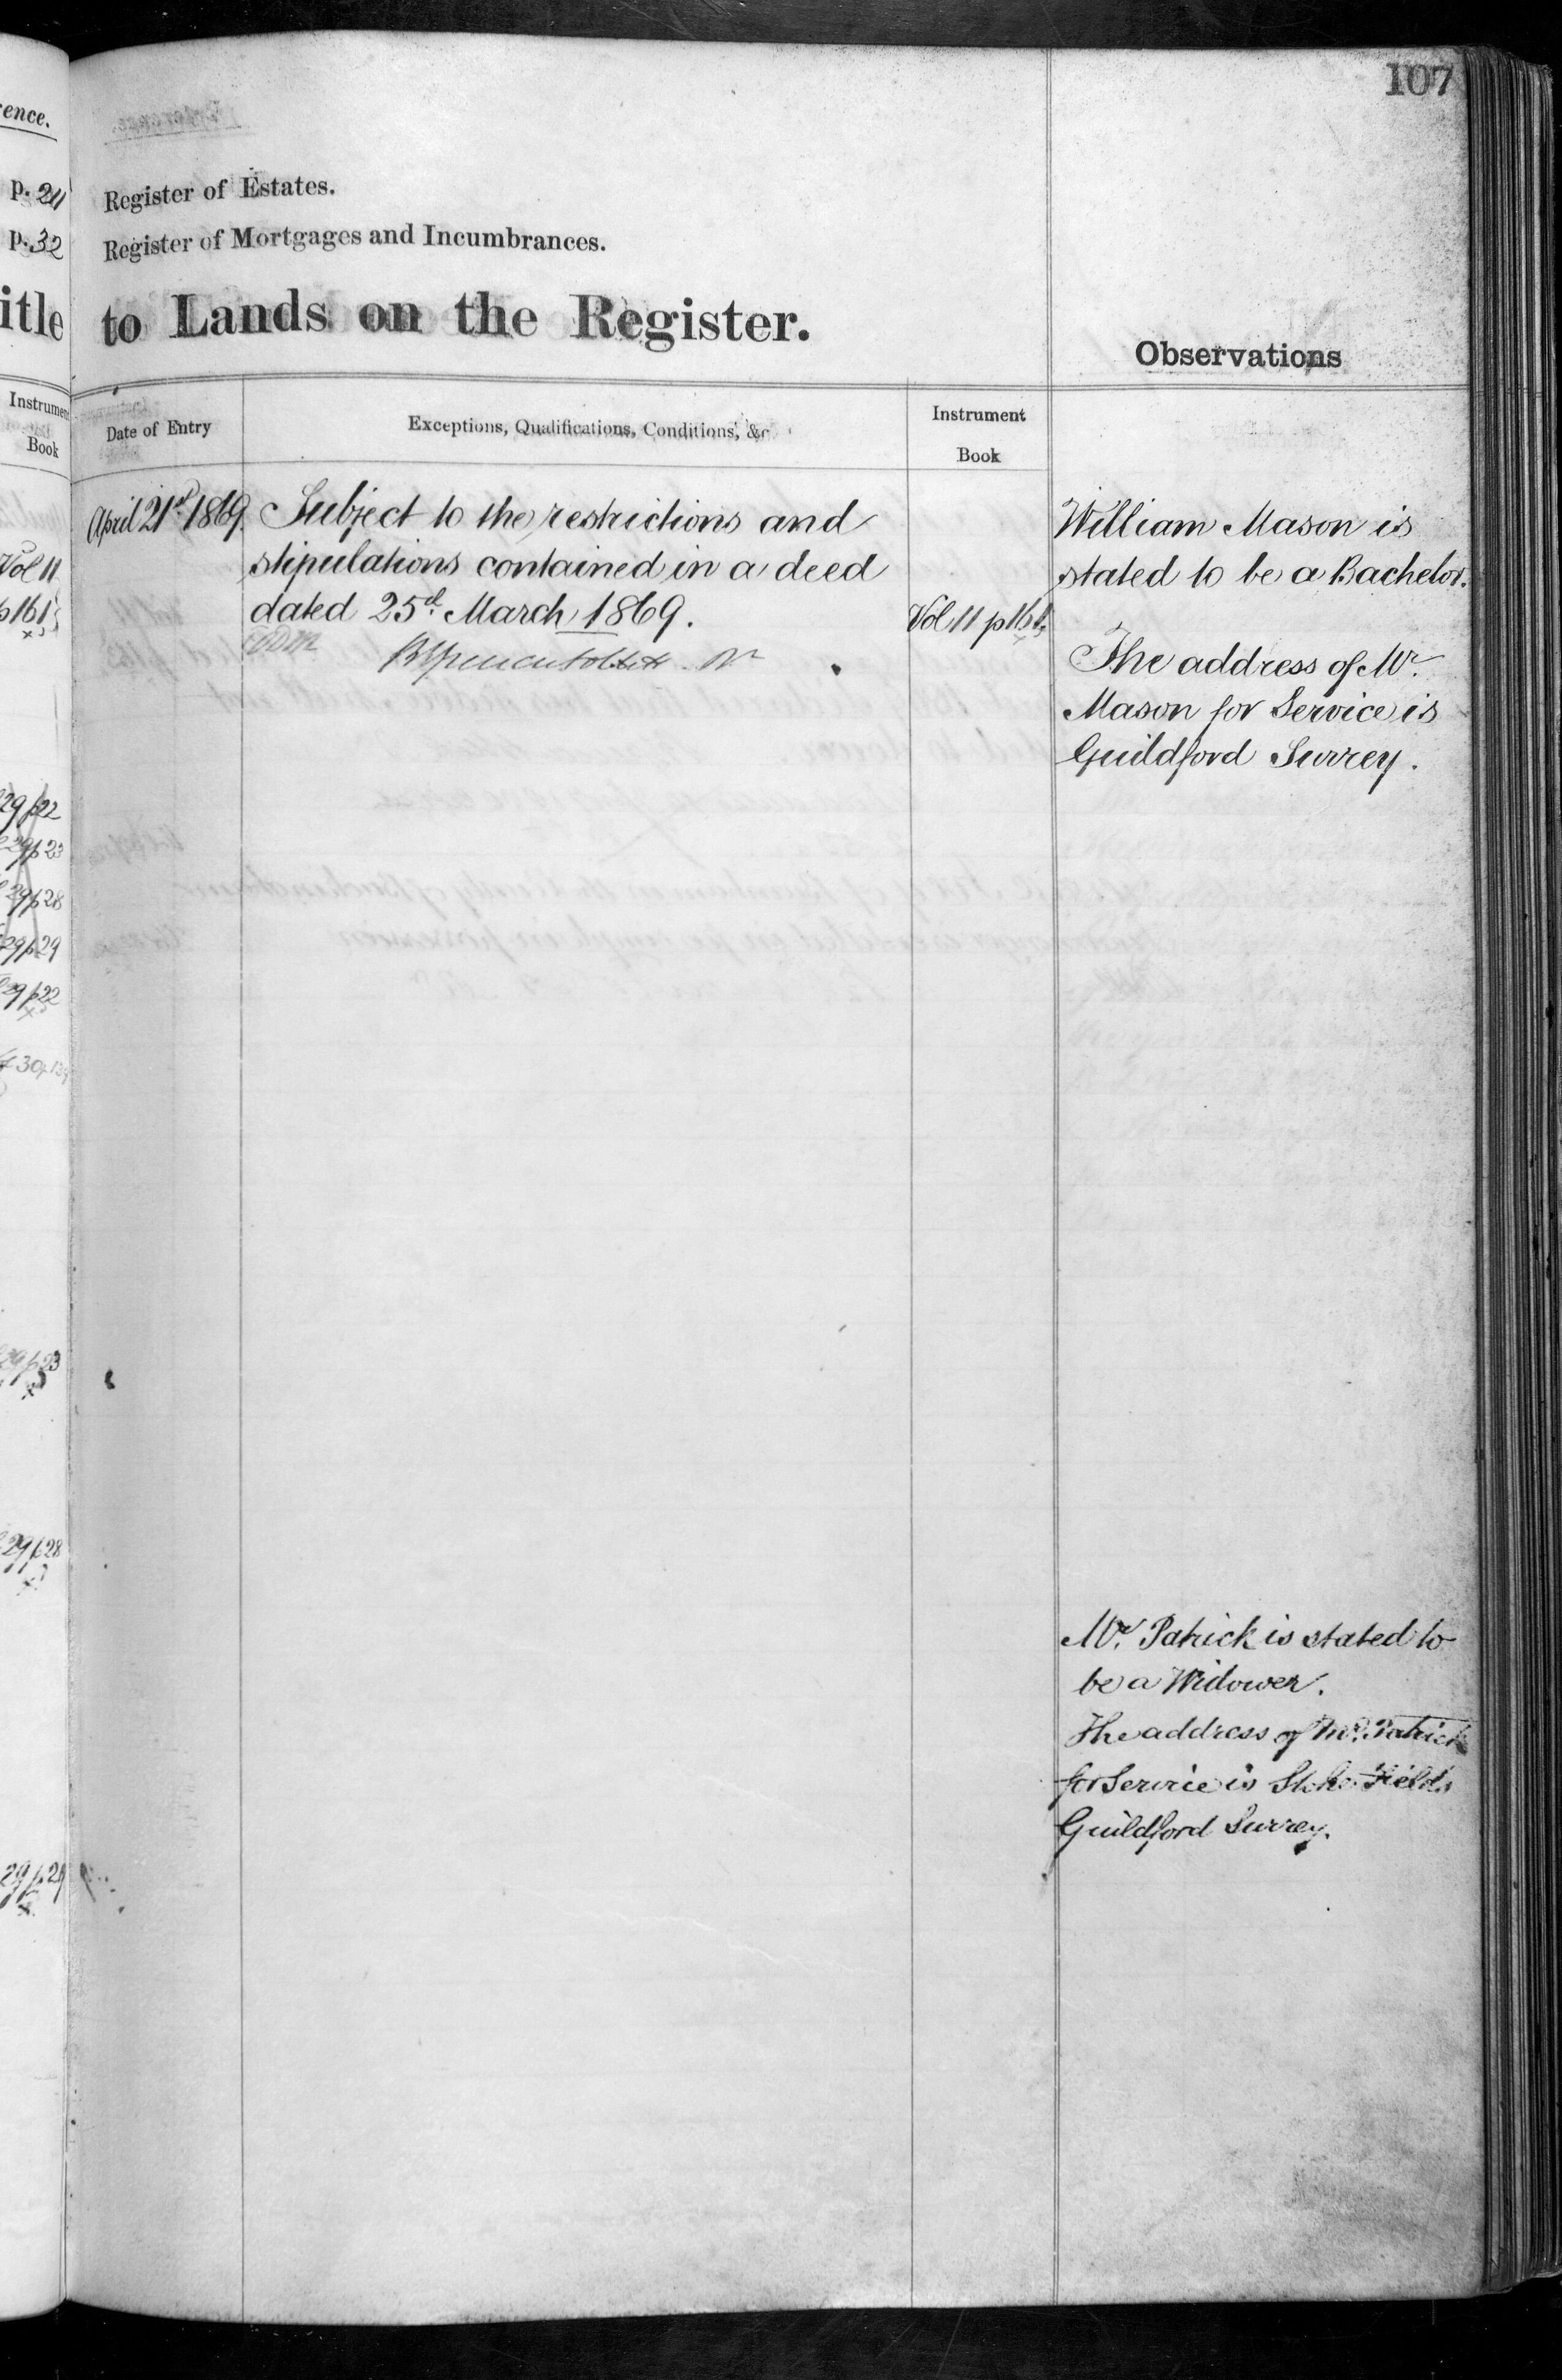 107
ence.
p. 211
p. 32
Register of Estates.
Register of Mortgages and Incumbrances.
itle
to Lands on the Register.
Observations
Instrument
Book
Date of Entry
Exceptions, Qualifications, Conditions, &c
Instrument
Book
Vol 11
p 161
April 21st 1869.
Subject to the restrictions and
stipulations contained in a deed
dated 25th March 1869.
Vol 11 p 161
William Mason is
stated to be a Bachelor.
The address of Mr.
Mason for Service is
Guildford Surrey.
29 p 22
29 p 23
29 p 28
29 p 29
29 p 22
29 p 23
29 p 28
29 p 29
Mr. Patrick is stated to
be a Widower.
The address of Mr. Patrick
for Service is Stoke Fields
Guildford Surrey.